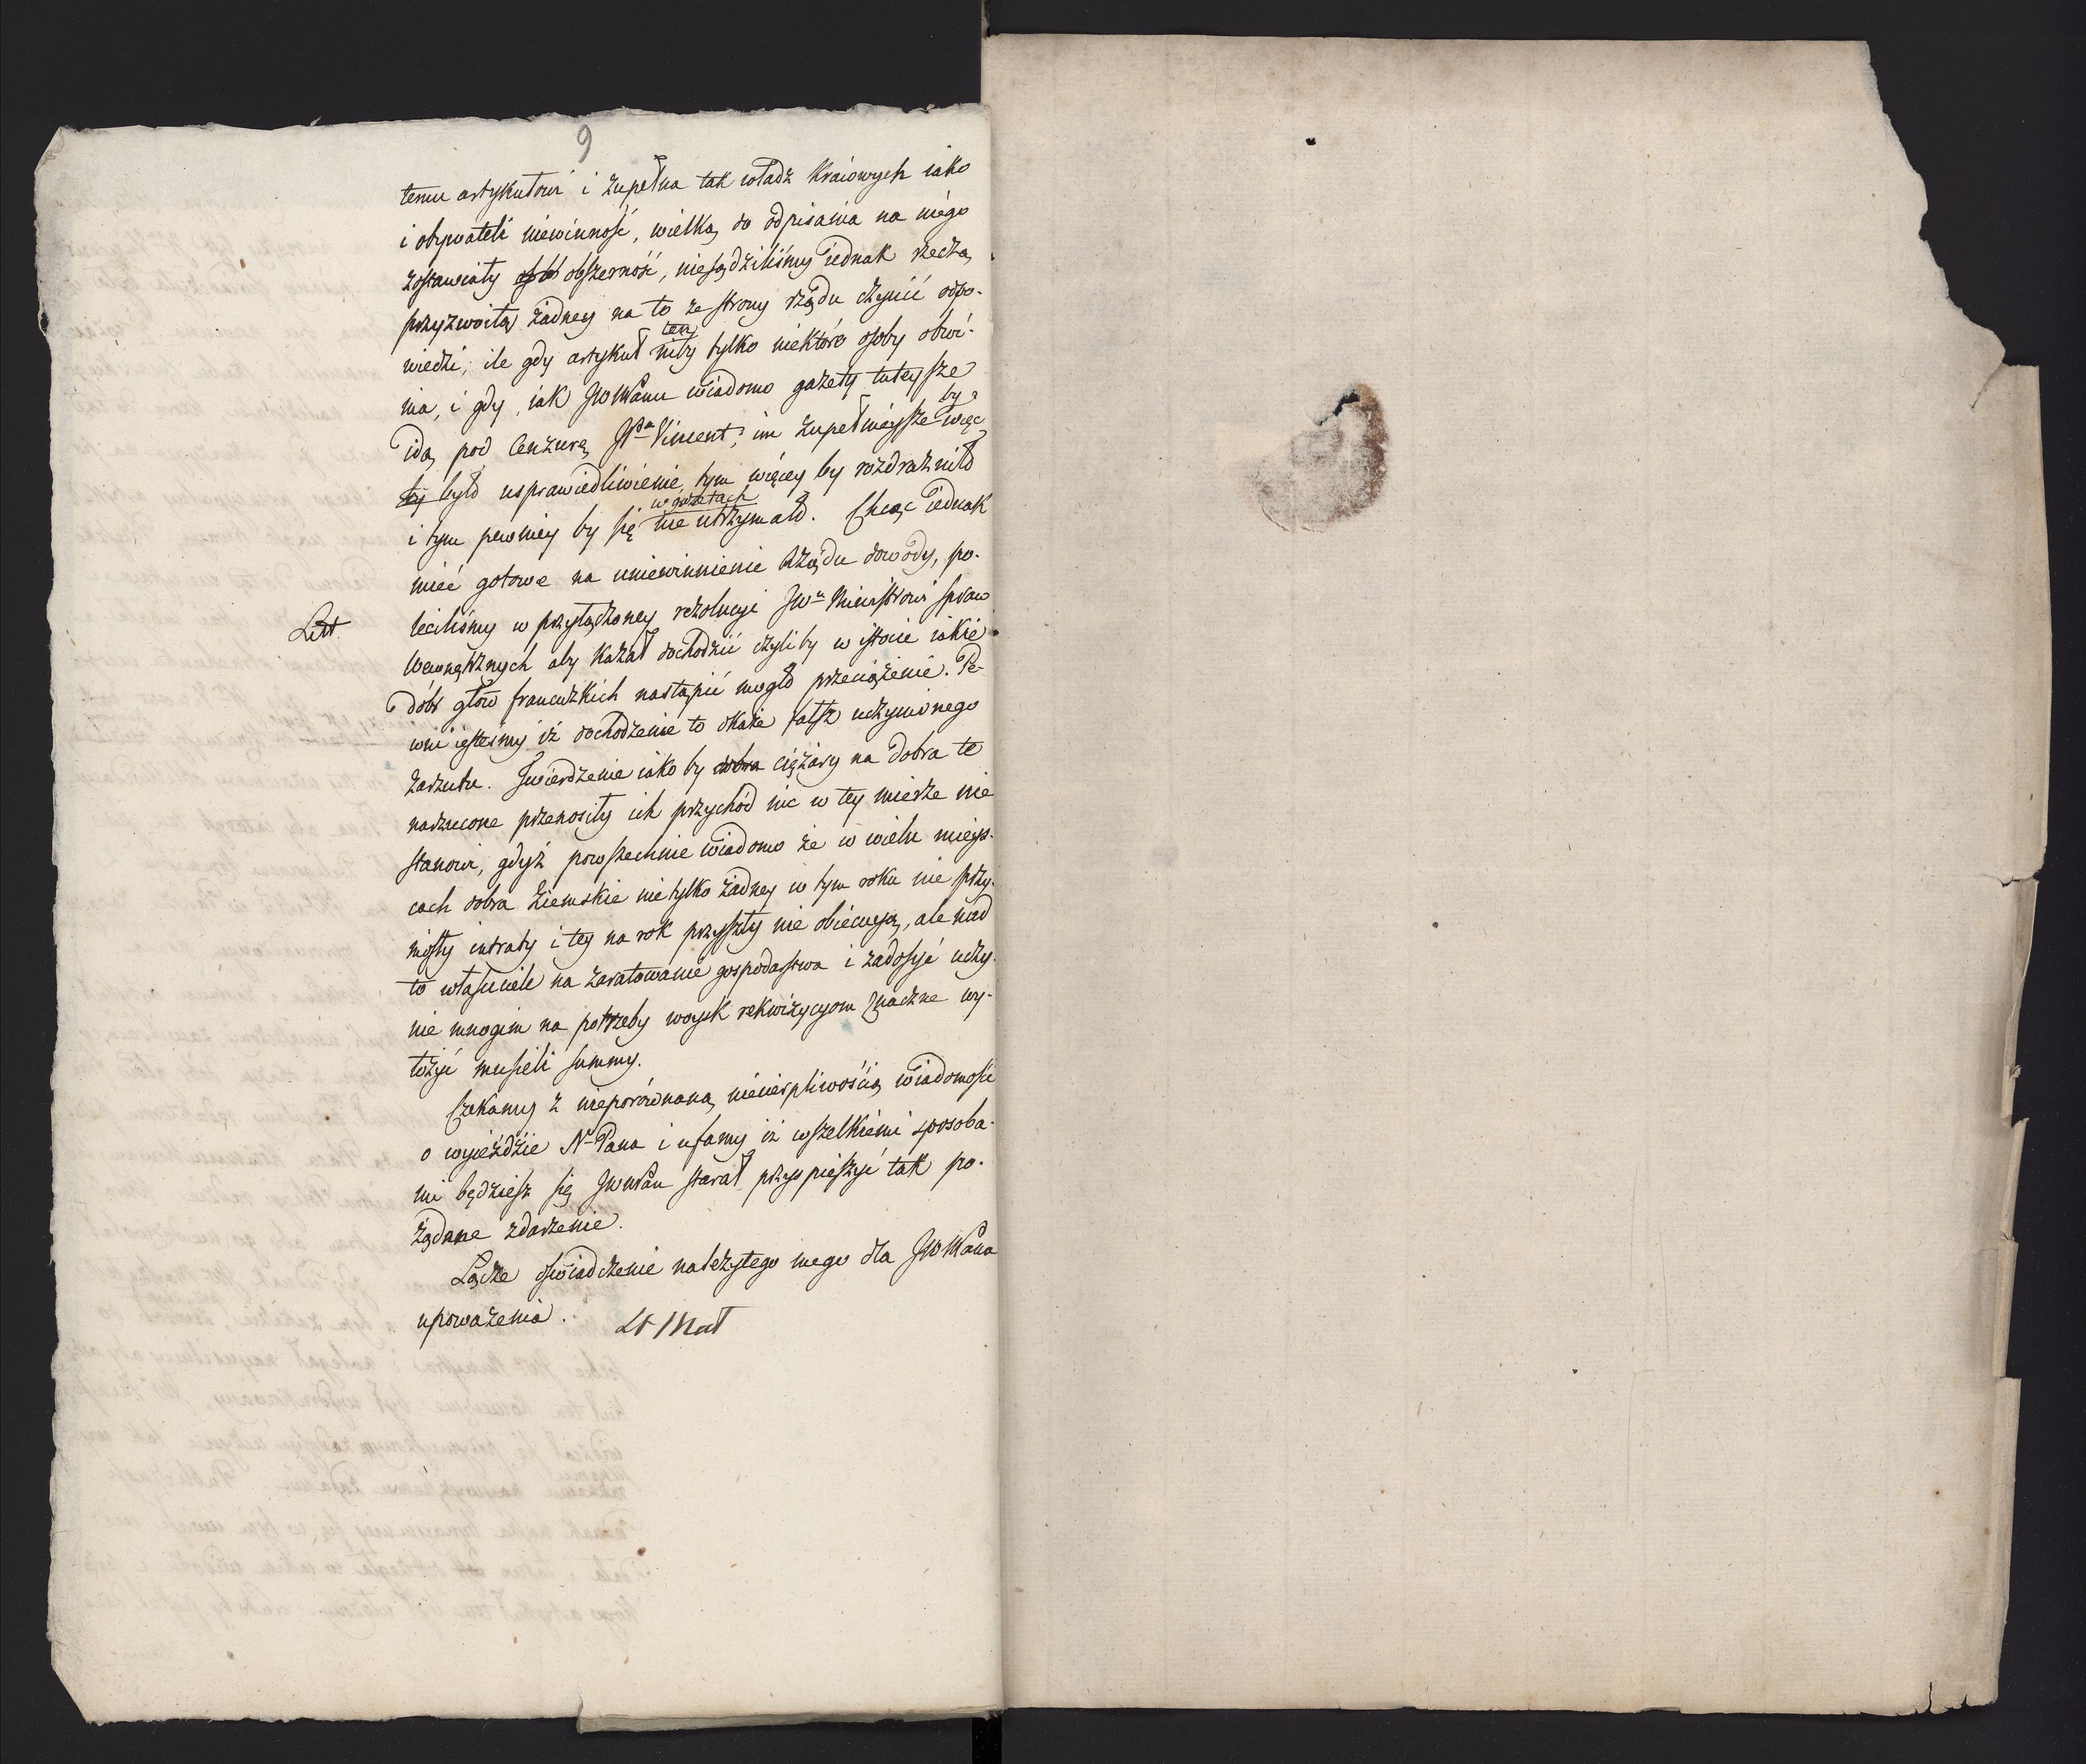 9
temu artykułowi i zupełna tak władz Kraiowych iako
i obywateli niewinność, wielką do odpisania na niego
zostawiały obszerność, niesądziliśmy iednak rzeczą
przyzwoitą żadney na to ze strony rządu czynić odpo-
wiedzi, ile gdy artykuł ten niby tylko niektóre osoby obwi-
nia, i gdy, iak JWWPanu wiadomo gazety tuteysze
idą pod Cenzurę JPa Vincent; im zupełnieysze by więc
było usprawiedliwienie, tym więcey by rozdrażniło
i tym pewniey by się w gazetach nie utrzymało. Chcąc iednak
mieć gotowe na uniewinnienie Rządu dowody, po-
Litt. leciliśmy w przyłączoney rezolucyi JWu Ministrowi spraw
Wewnętrznych aby kazał dochodzić czyliby w istocie iakie
dóbr głów francuzkich nastąpić mogło przeciążenie. Pe-
wni iesteśmy iż dochodzenie to okaże fałsz uczynionego
zarzutu. Twierdzenie iakoby dobra ciężary na dobra te
narzucone przenosiły ich przychód nic w tey mierze nie
stanowi, gdyż powszechnie wiadomo że w wielu mieys-
cach dobra Ziemskie nietylko żadney w tym roku nie przy-
niosły intraty i tey na rok przyszły nie obiecuyą, ale nad
to właściciele na zaratowanie gospodarstwa i zadosyć uczy-
nie mnogim na potrzeby woysk rekwizycyom znaczne wy-
łożyć musieli summy.
Czekamy z nieporównaną niecierpliwością wiadomości
o wyieździe No Pana i ufamy iż wszelkiemi sposoba-
mi będziesz się JWWPan starał przyspieszyć tak po-
żądane zdarzenie.
Łączę oświadczenie należytego mego dla JWWPana
upoważenia.